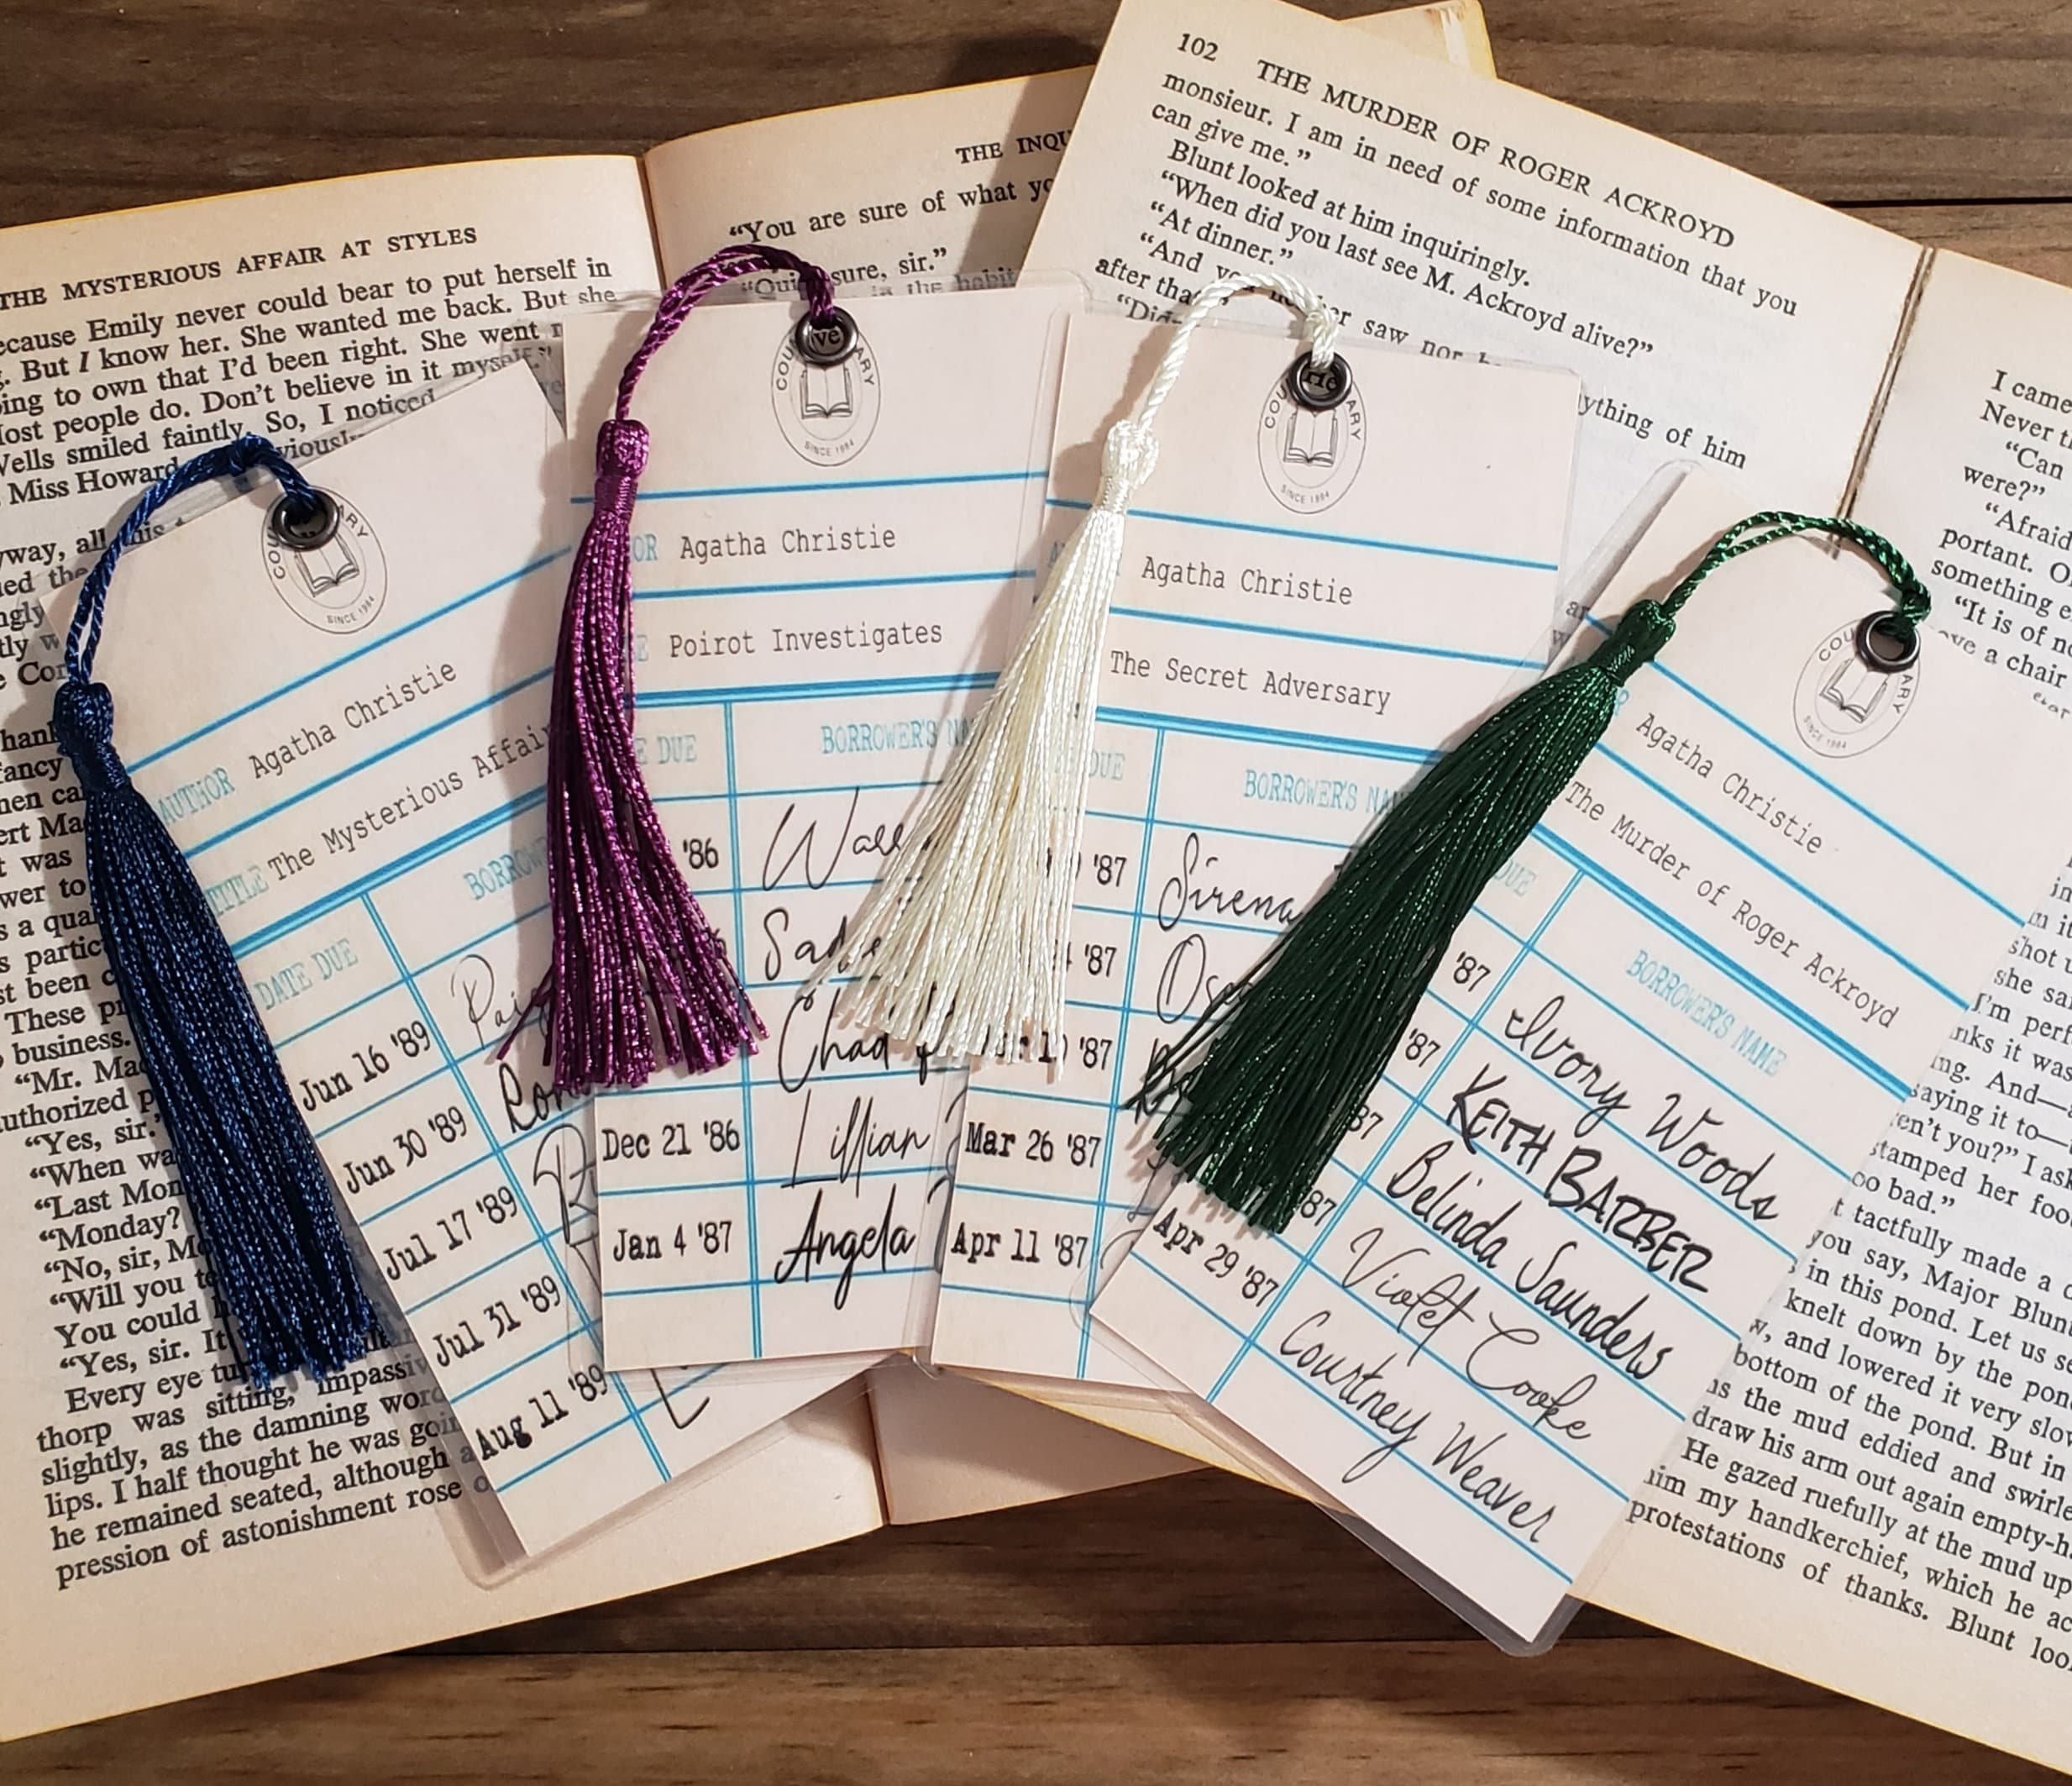 THE MYSTERIOUS AFFAIR AT STYLES
ecause Emily never could bear to put herself in
. But I know her. She wanted me back. But she
ing to own that I'd been right. She went
ost people do. Don't believe in it myself."
Wells smiled faintly. So, I noticed
Miss Howard
yway, all this
ed the
ngly
tly
e Con
hank
fancy
en ca
ert Ma
t was
wer to
s a qua
s partic
st been
These
business.
"Mr. Ma
uthorized
"Yes, sir."
"When wa
"Last Mon
"Monday?
"No, sir, M
"Will you
You could
"Yes, sir. It
Every eye
thorp was sitting, impassiv
slightly, as the damning wor
lips. I half thought he was goi
he remained seated, although a
pression of astonishment rose o
THE INQU
"You are sure of what yo
"Quite sure, sir."
in the habit
102 THE MURDER OF ROGER ACKROYD
monsieur. I am in need of some information that you
can give me."
Blunt looked at him inquiringly.
"When did you last see M. Ackroyd alive?"
"At dinner."
"And you neither saw nor
after tha
"Did
ything of him
I came
Never t
"Can
were?"
"Afraid
portant. O
something e
"It is of no
ove a chair
in
m it
shot
she sa
I'm perf
nks it was
ng. And—
saying it to—
en't you?" I ask
stamped her foo
oo bad."
t tactfully made a
you say, Major Blunt
in this pond. Let us se
knelt down by the pon
w, and lowered it very slow
bottom of the pond. But in
s the mud eddied and swirle
draw his arm out again empty-h
He gazed ruefully at the mud up
im my handkerchief, which he ac
protestations of thanks. Blunt loo
COU ARY
SINCE 1984
AUTHOR Agatha Christie
TITLE The Mysterious Affair
DATE DUE BORROW
Jun 16 '89 Pai
Jun 30 '89 Ron
Jul 17 '89
Jul 31 '89
Aug 11 '89
COU ARY
SINCE 1984
OR Agatha Christie
E Poirot Investigates
E DUE BORROWER'S NA
'86 Wall
Sad
Chad
Dec 21 '86 Lillian
Jan 4 '87 Angela
COU ARY
SINCE 1984
Agatha Christie
The Secret Adversary
DUE BORROWER'S NAM
'87 Sirena
'87 Os
'87
Mar 26 '87
Apr 11 '87
COU ARY
SINCE 1984
R Agatha Christie
The Murder of Roger Ackroyd
DUE BORROWER'S NAME
'87 Ivory Woods
'87 KEITH BARBER
87 Belinda Saunders
'87 Violet Cooke
Apr 29 '87 Courtney Weaver